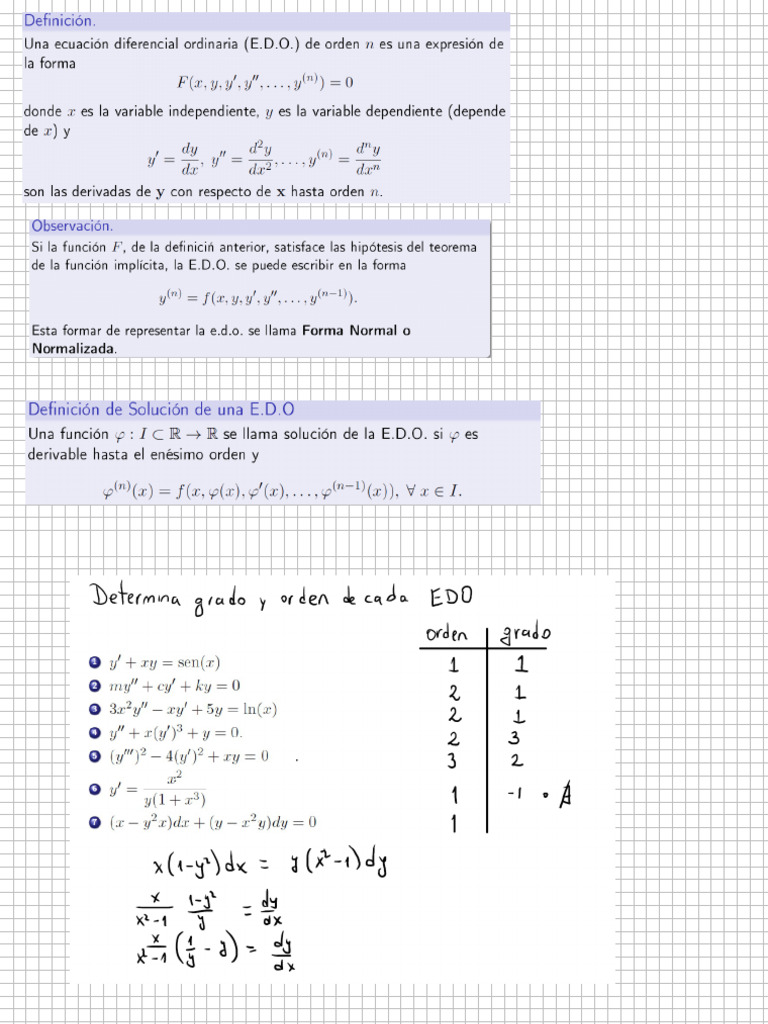 Definición.
Una ecuación diferencial ordinaria (E.D.O.) de orden n es una expresión de
la forma
F(x, y, y′, y″, . . . , y⁽ⁿ⁾) = 0
donde x es la variable independiente, y es la variable dependiente (depende
de x) y
y′ = dy/dx, y″ = d²y/dx², . . . , y⁽ⁿ⁾ = dⁿy/dxⁿ
son las derivadas de y con respecto de x hasta orden n.
Observación.
Si la función F, de la definiciń anterior, satisface las hipótesis del teorema
de la función implícita, la E.D.O. se puede escribir en la forma
y⁽ⁿ⁾ = f(x, y, y′, y″, . . . , y⁽ⁿ⁻¹⁾).
Esta formar de representar la e.d.o. se llama Forma Normal o
Normalizada.
Definición de Solución de una E.D.O
Una función φ : I ⊂ ℝ → ℝ se llama solución de la E.D.O. si φ es
derivable hasta el enésimo orden y
φ⁽ⁿ⁾(x) = f(x, φ(x), φ′(x), . . . , φ⁽ⁿ⁻¹⁾(x)), ∀ x ∈ I.
Determina grado y orden de cada EDO
orden grado
1 y′ + xy = sen(x) 1 1
2 my″ + cy′ + ky = 0 2 1
3 3x²y″ − xy′ + 5y = ln(x) 2 1
4 y″ + x(y′)³ + y = 0. 2 3
5 (y‴)² − 4(y′)² + xy = 0 . 3 2
6 y′ = x²/y(1 + x³) 1 -1 • ∄
7 (x − y²x)dx + (y − x²y)dy = 0 1
x(1-y²)dx = y(x²-1)dy
x/x²-1 1-y²/y = dy/dx
x/x²-1 (1/y - y) = dy/dx